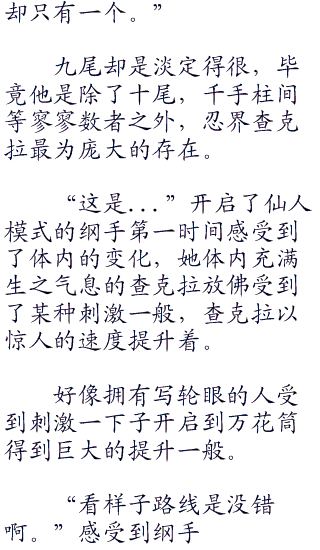 却只有一个。”
九尾却是淡定得很，毕
竟他是除了十尾，千手柱间
等寥寥数者之外，忍界查克
拉最为庞大的存在。
“这是...”开启了仙人
模式的纲手第一时间感受到
了体内的变化，她体内充满
生之气息的查克拉放佛受到
了某种刺激一般，查克拉以
惊人的速度提升着。
好像拥有写轮眼的人受
到刺激一下子开启到万花筒
得到巨大的提升一般。
“看样子路线是没错
啊。”感受到纲手